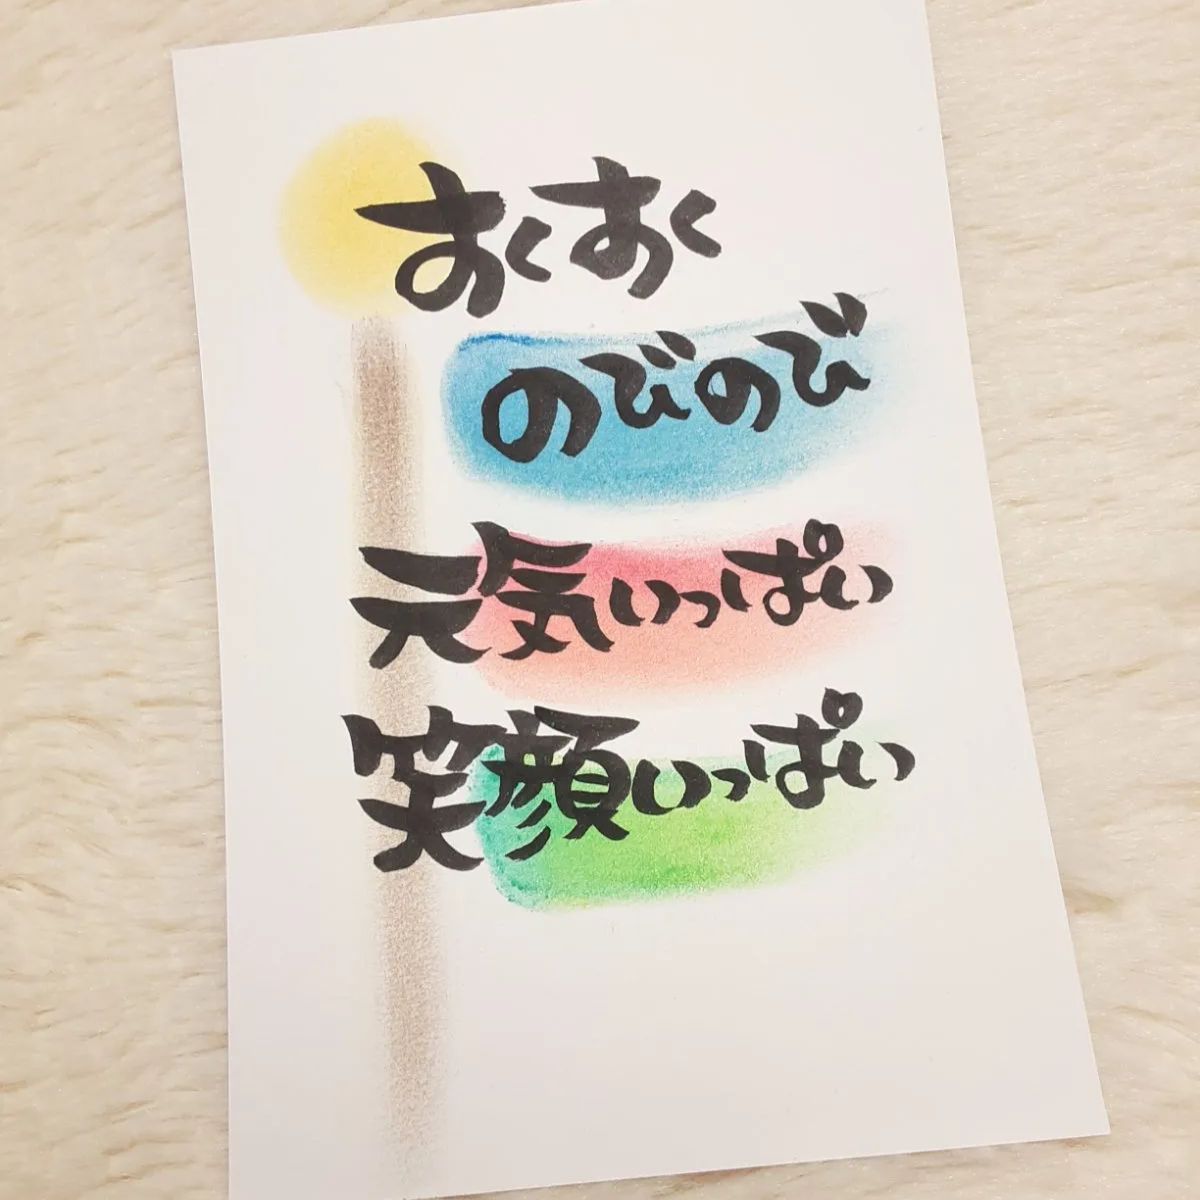 すくすく
のびのび
元気いっぱい
笑顔いっぱい